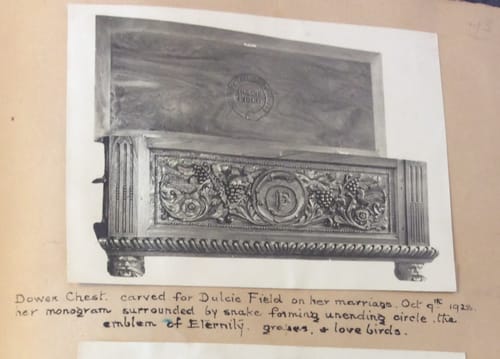 Dower Chest. carved for Dulcie Field on her marriage. Oct 9th
her monogram surrounded by snake forming unending circle. the
emblem of Eternity. grapes, & love birds.